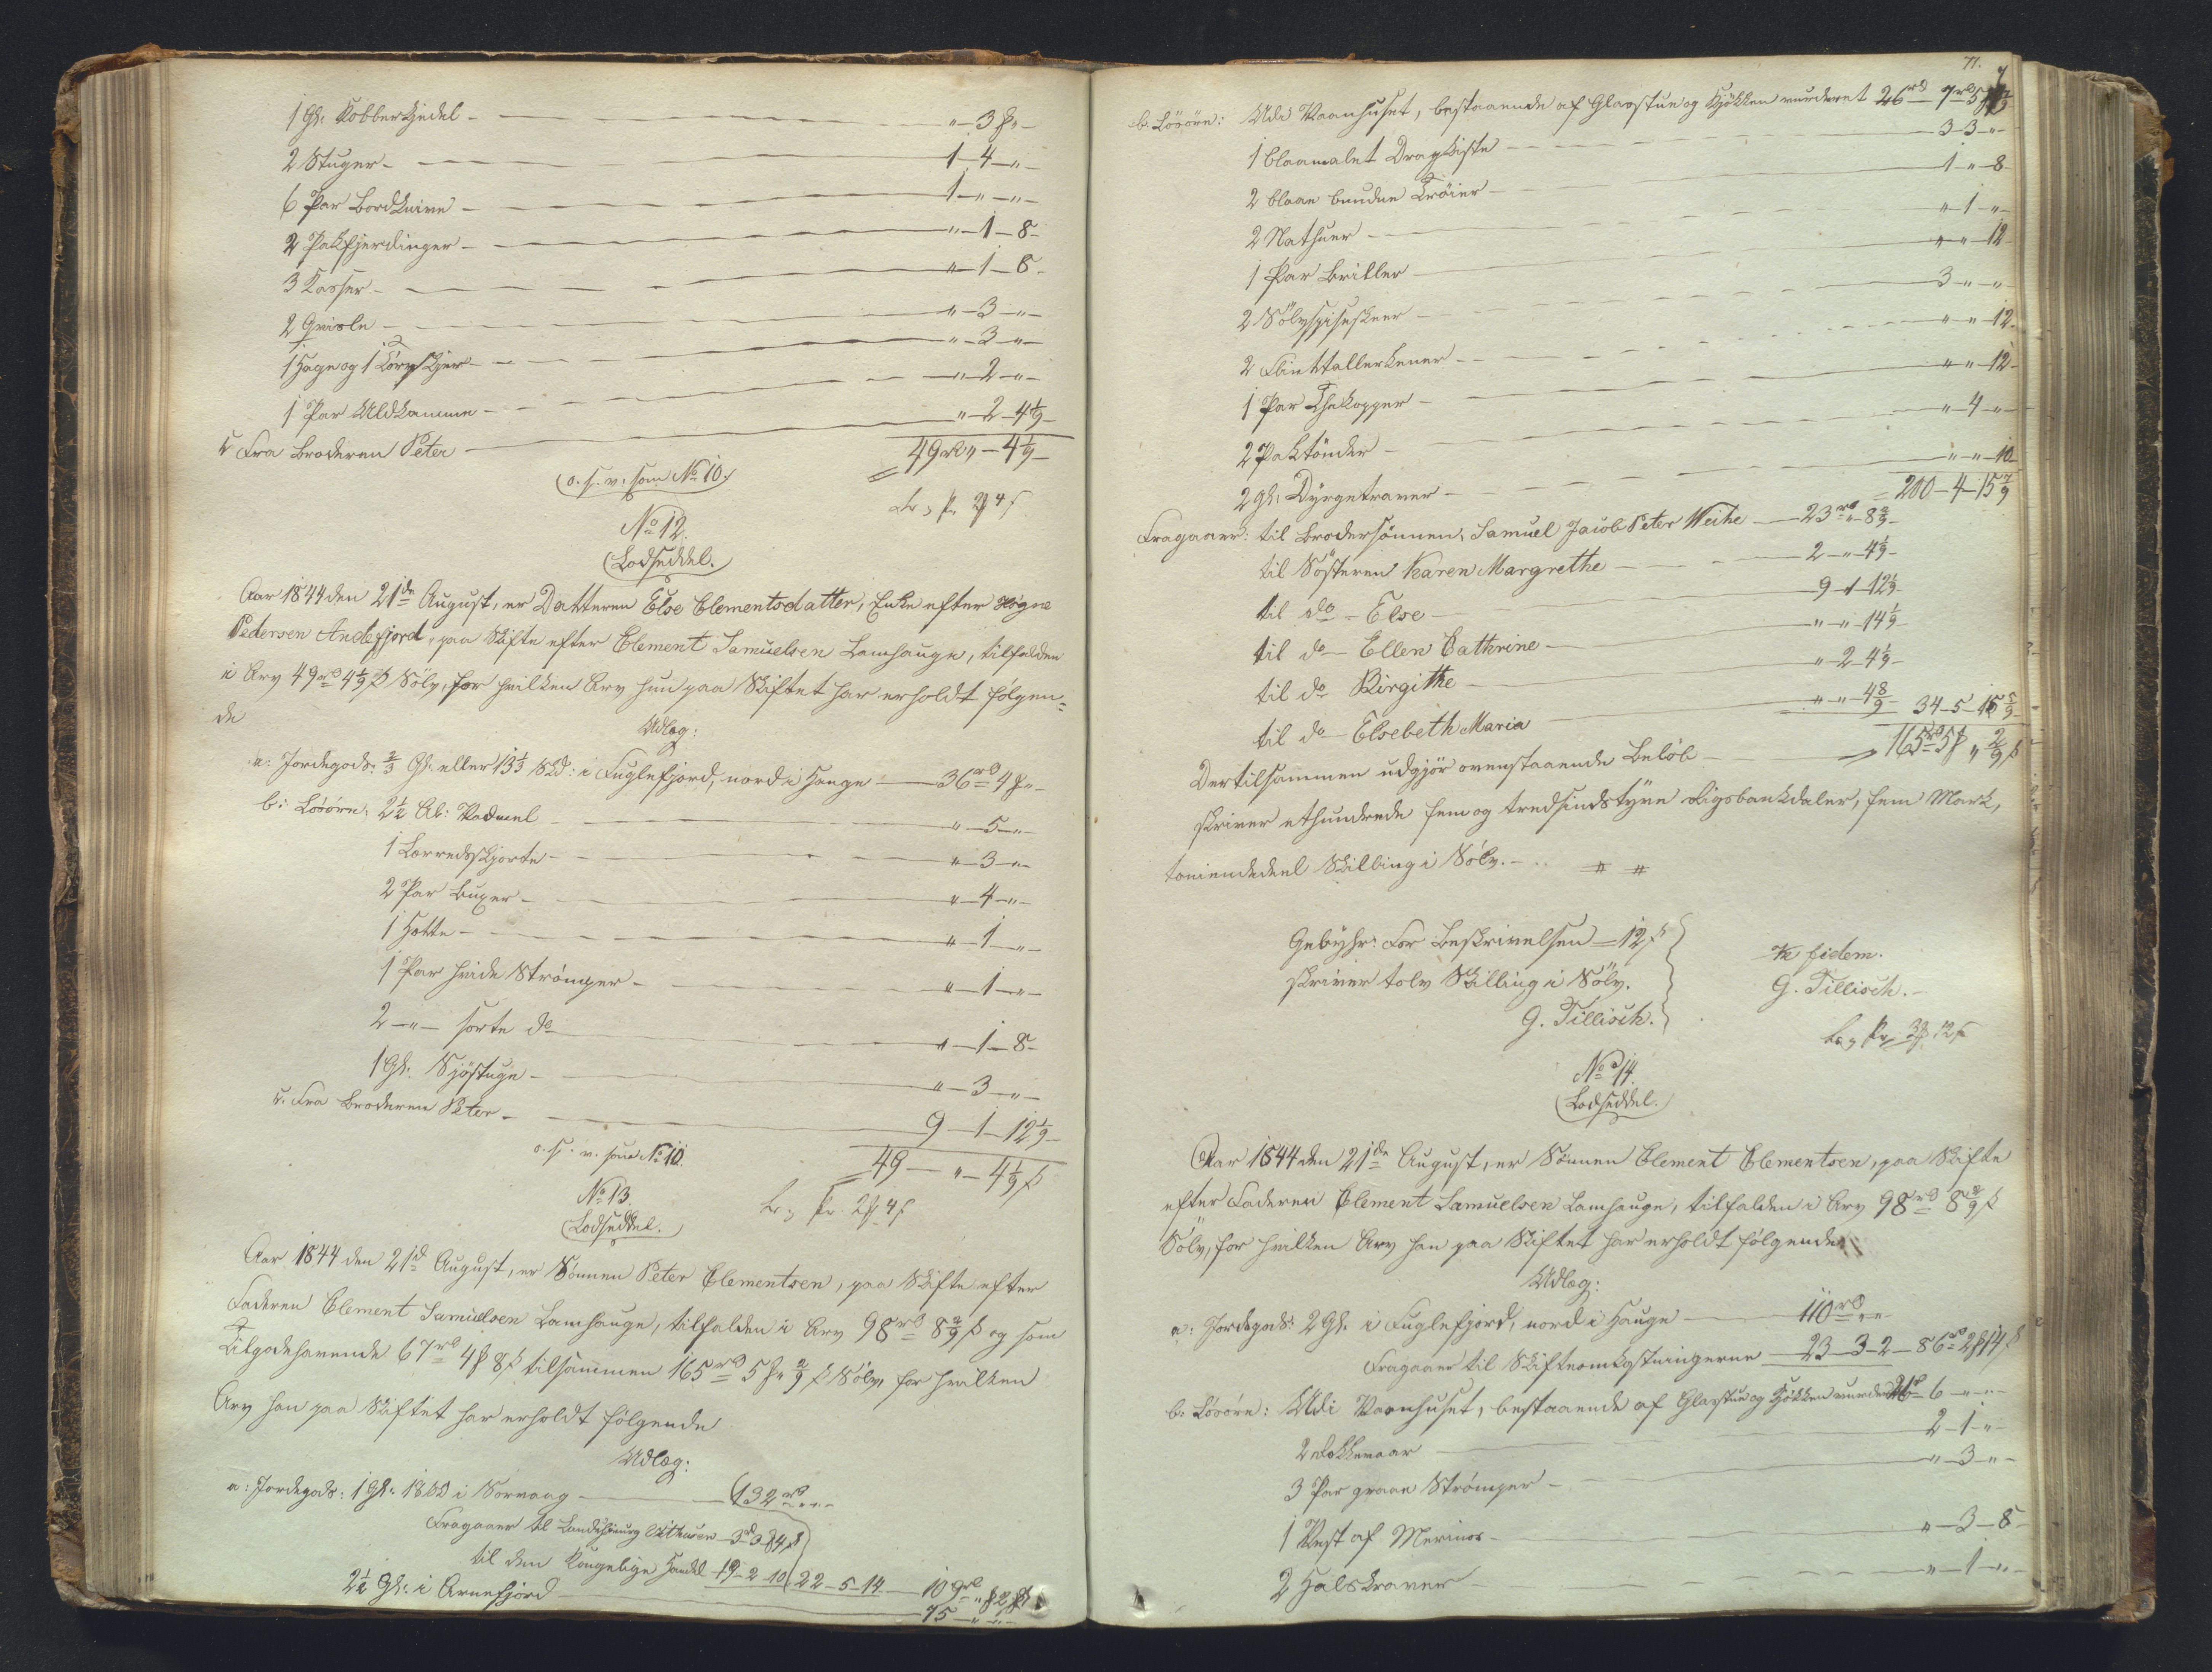 1 Gl. Kobberkjedel - " - 3 ß " -
2 Stuger - 1 - 4 - " -
6 Par Bordknive - 1 - " - " -
2 Pakfjerdinger - " - 1 - 8 -
3 Kasser - " - 1 - 8 -
2 Grisle - " - 3 - " -
1 Hage og 1 - " - 3 - " -
1 Par Uldkamme - " - 2 - " -
c Fra Broderen Peter - " - 2 - 4 1/9 -
49 rbd " - 4 1/9 -
(o. s. v. som No 10.)
No 12.
(Lodseddel.)
Aar 1844 den 21de August, er Datteren Else Clementsdatter, Enke efter Høgne
Pedersen Andefjord, paa Skifte efter Clement Samuelsen Lamhauge, tilfalden
i Arv 49 rbd 4 1/9 ß Sølv, for hvilken Arv hun paa Skiftet har erholdt følgen=
de
Udlæg:
a: Jordegods: 2/3 Gl. eller 13 1/3 Skd: i Fuglefjord, nord i Hauge - 36 rbd 4 ß " -
b: Løsøre: 2 1/2 Al: Vadmel - " - 5 - " -
1 Lærredsskjorte - " - 3 - " -
2 Par Buxer - " - 4 - " -
1 Hætte - " - 1 - " -
1 Par hvide Strømper - " - 1 - " -
2 - " - sorte do - " - 1 - 8 -
1 Gl. Sjøstuge - " - 3 - " -
c. Fra Broderen Peter - 9 - 1 - 12 1/9 -
49 - " - 4 1/9 ß
o. s. v. som No 10.
No 13.
(Lodseddel.)
Aar 1844 den 21de August, er Sønnen Peter Clementsen, paa Skifte efter
Faderen Clement Samuelsen Lamhauge, tilfalden i Arv 98 rbd 8 2/9 ß og som
Tilgodehavende 67 rbd 4 ß 8 ß tilsammen 165 rbd 5 ß " 2/9 ß Sølv, for hvilken
Arv han paa Skiftet har erholdt følgende
Udlæg:
a: Jordegods: 1 Gl. i Sorvaag - 132 rbd " " -
Fragaaer til - 3 rbd 3 ß 4 ß
til den Kongelige Handel 19 - 2 - 10 22 - 5 - 14 - 109 rbd " ß 2 ß
2 1/2 Gl. i Arnefjord - 75 - " - " -
71.
b. Løsøre: Udi Vaanhuset, bestaaende af Glasstue og Kjøkken vurderet 26 rbd
1 blaamalet Dragkiste - 3 - 3 - " -
2 blaae bundne Trøier - 1 - " - 8
2 Nathuer - " - 1 - " -
1 Par Briller - " - " - 12
2 Sølvspiseskeer - 3 - " - " -
2 Flinttallerkener - " - " - 12 -
1 Par Thekopper - " - " - 12 -
2 Paktønder - " - 4 - " -
2 Gl. Dyrgetraver - " - " - 10 -
200 - 4 - 15 7/9
Fragaaer: til Brodersønnen, Samuel Jacob Peter Weihe - 23 rbd " 8 2/9 -
til Søsteren Karen Margrethe - 2 - " 4 1/9 -
til do - Else - 9 - 1 - 12 1/9 -
til do - Ellen Cathrine - " - " - 14 1/9 -
til do Birgithe - " - 2 - 4 1/9 -
til do - Elsebeth Maria - " - " - 4 8/9 - 34 - 5 - 15 5/9
Dertilsammen udgjør ovenstaaende Beløb - 165 rbd 5 ß " 2/9 ß
skriver ethundrede fem og tredsindstyve Rigsbankdaler, fem Mark,
toniendedeel Skilling i Sølv. -
Gebyhr: For Beskrivelsen - 12 ß
skriver tolv Skilling i Sølv.
G. Tillisch.
in fidem.
G. Tillisch. -
No 14.
(Lodseddel.)
Aar 1844 den 21de August, er Sønnen Clement Clementsen, paa Skifte
efter Faderen Clement Samuelsen Lamhauge, tilfalden i Arv 98 rbd 8 2/9 ß
Sølv, for hvilken Arv han paa Skiftet har erholdt følgende
Udlæg:
a: Jordegods: 2 Gl. i Fuglefjord, nord i Hauge - 110 rbd " " -
Fragaaer til Skifteomkostningerne - 23 - 3 - 2 - 86 rbd 2 ß 14 ß
b. Løsøre: Udi Vaanhuset, bestaaende af Glasstue og Kjøkken vurderet 26 rbd 6 - " - " -
2 - 2 - 1 - " -
3 Par graae Strømper - " - 3 - " -
1 Vest af Merinos - " - 3 - 8 -
2 Halskraver - " - 1 - " -